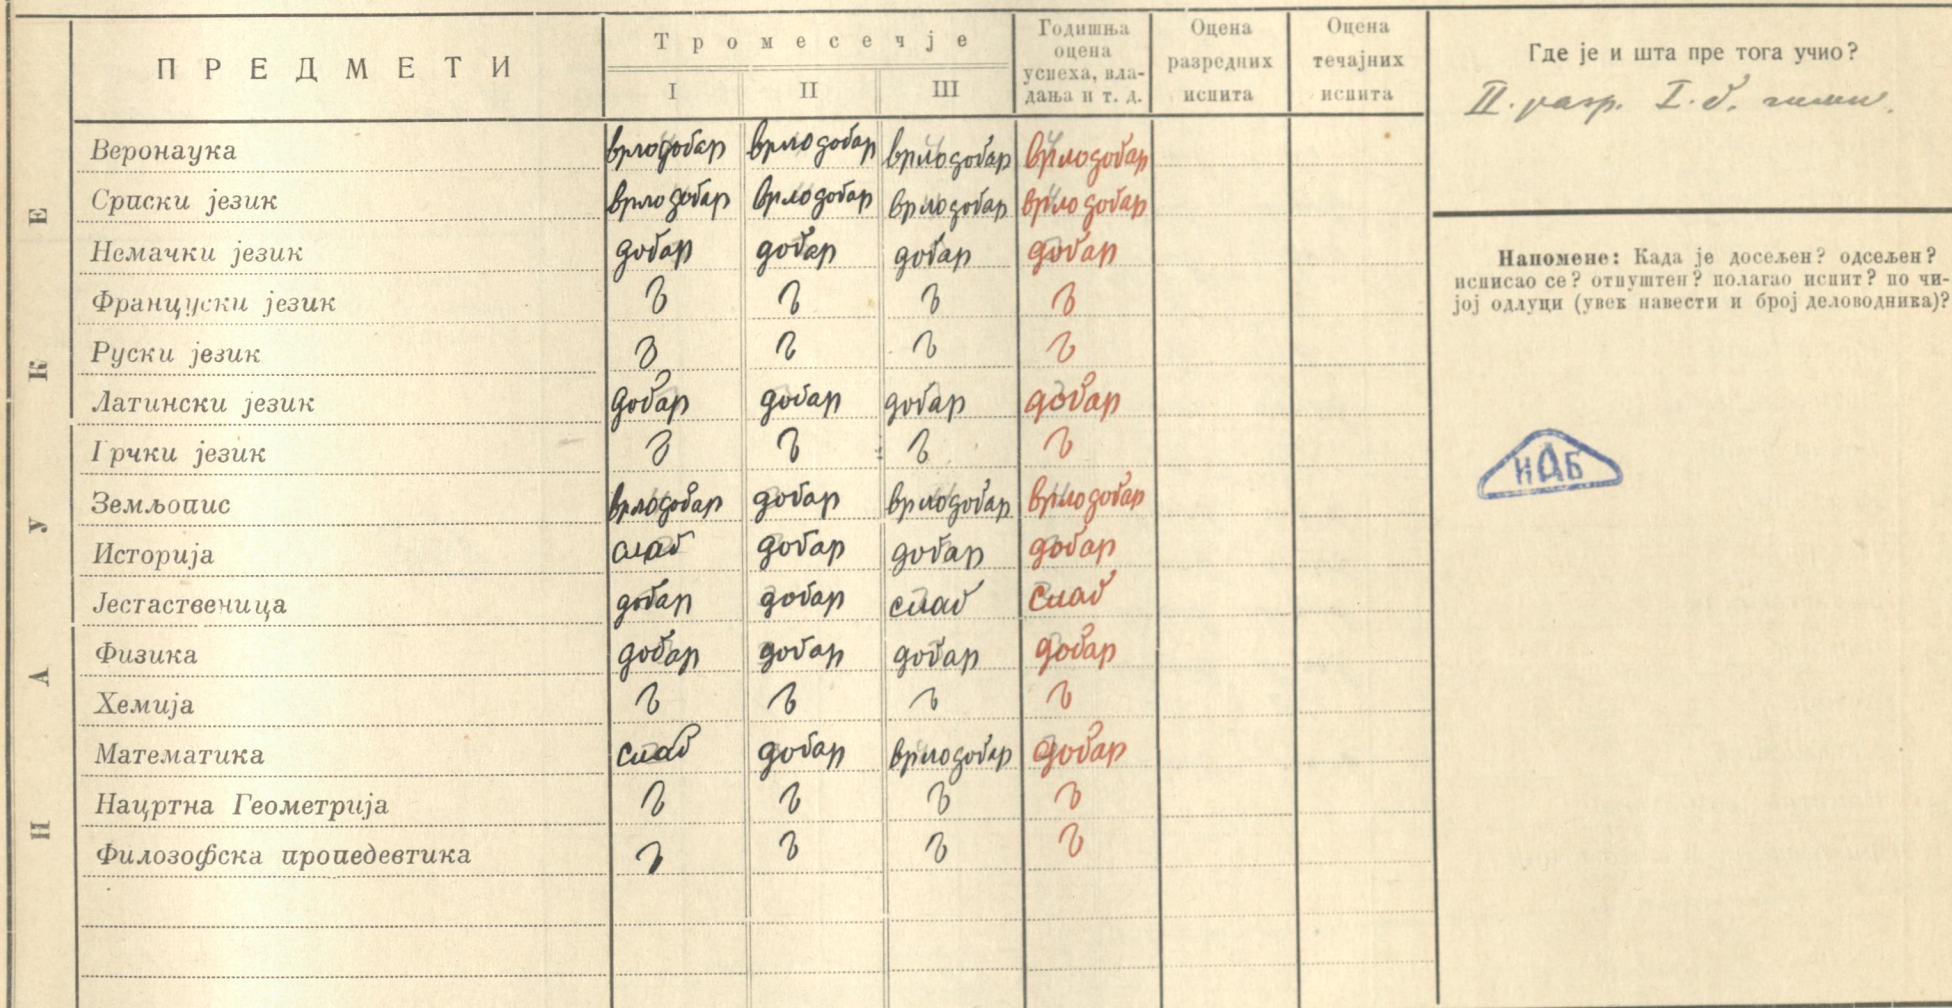 НАУКЕ
ПРЕДМЕТИ
Тромесечје
I II III
Годишња оцена успеха, вла-дања и т. д.
Оцена разредних испита
Оцена течајних испита
Веронаука врлодобар врлодобар врлодобар врлодобар
Српски језик врлодобар врлодобар врлодобар врлодобар
Немачки језик добар добар добар добар
Француски језик
Руски језик
Латински језик добар добар добар добар
Грчки језик
Земљопис врлодобар добар врлодобар врлодобар
Историја слаб добар добар добар
Јестаственица добар добар слаб слаб
Физика добар добар добар добар
Хемија
Математика слаб добар врлодобар добар
Нацртна Геометрија
Филозофска пропедевтика
Где је и шта пре тога учио?
II. разр. I. б. гимн.
Напомене: Када је досељен? одсељен?
исписао се? отпуштен? полагао испит? по чи-
јој одлуци (увек навести и број деловодника)?
ИАБ